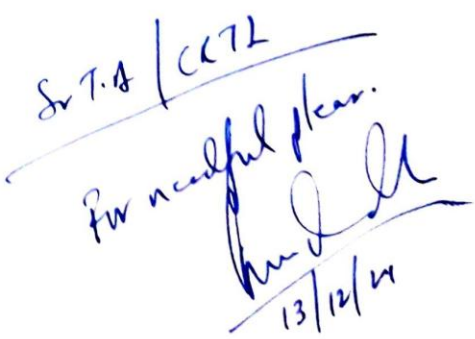 Sr T.A | CKTL
For needful pleas.
13/12/24